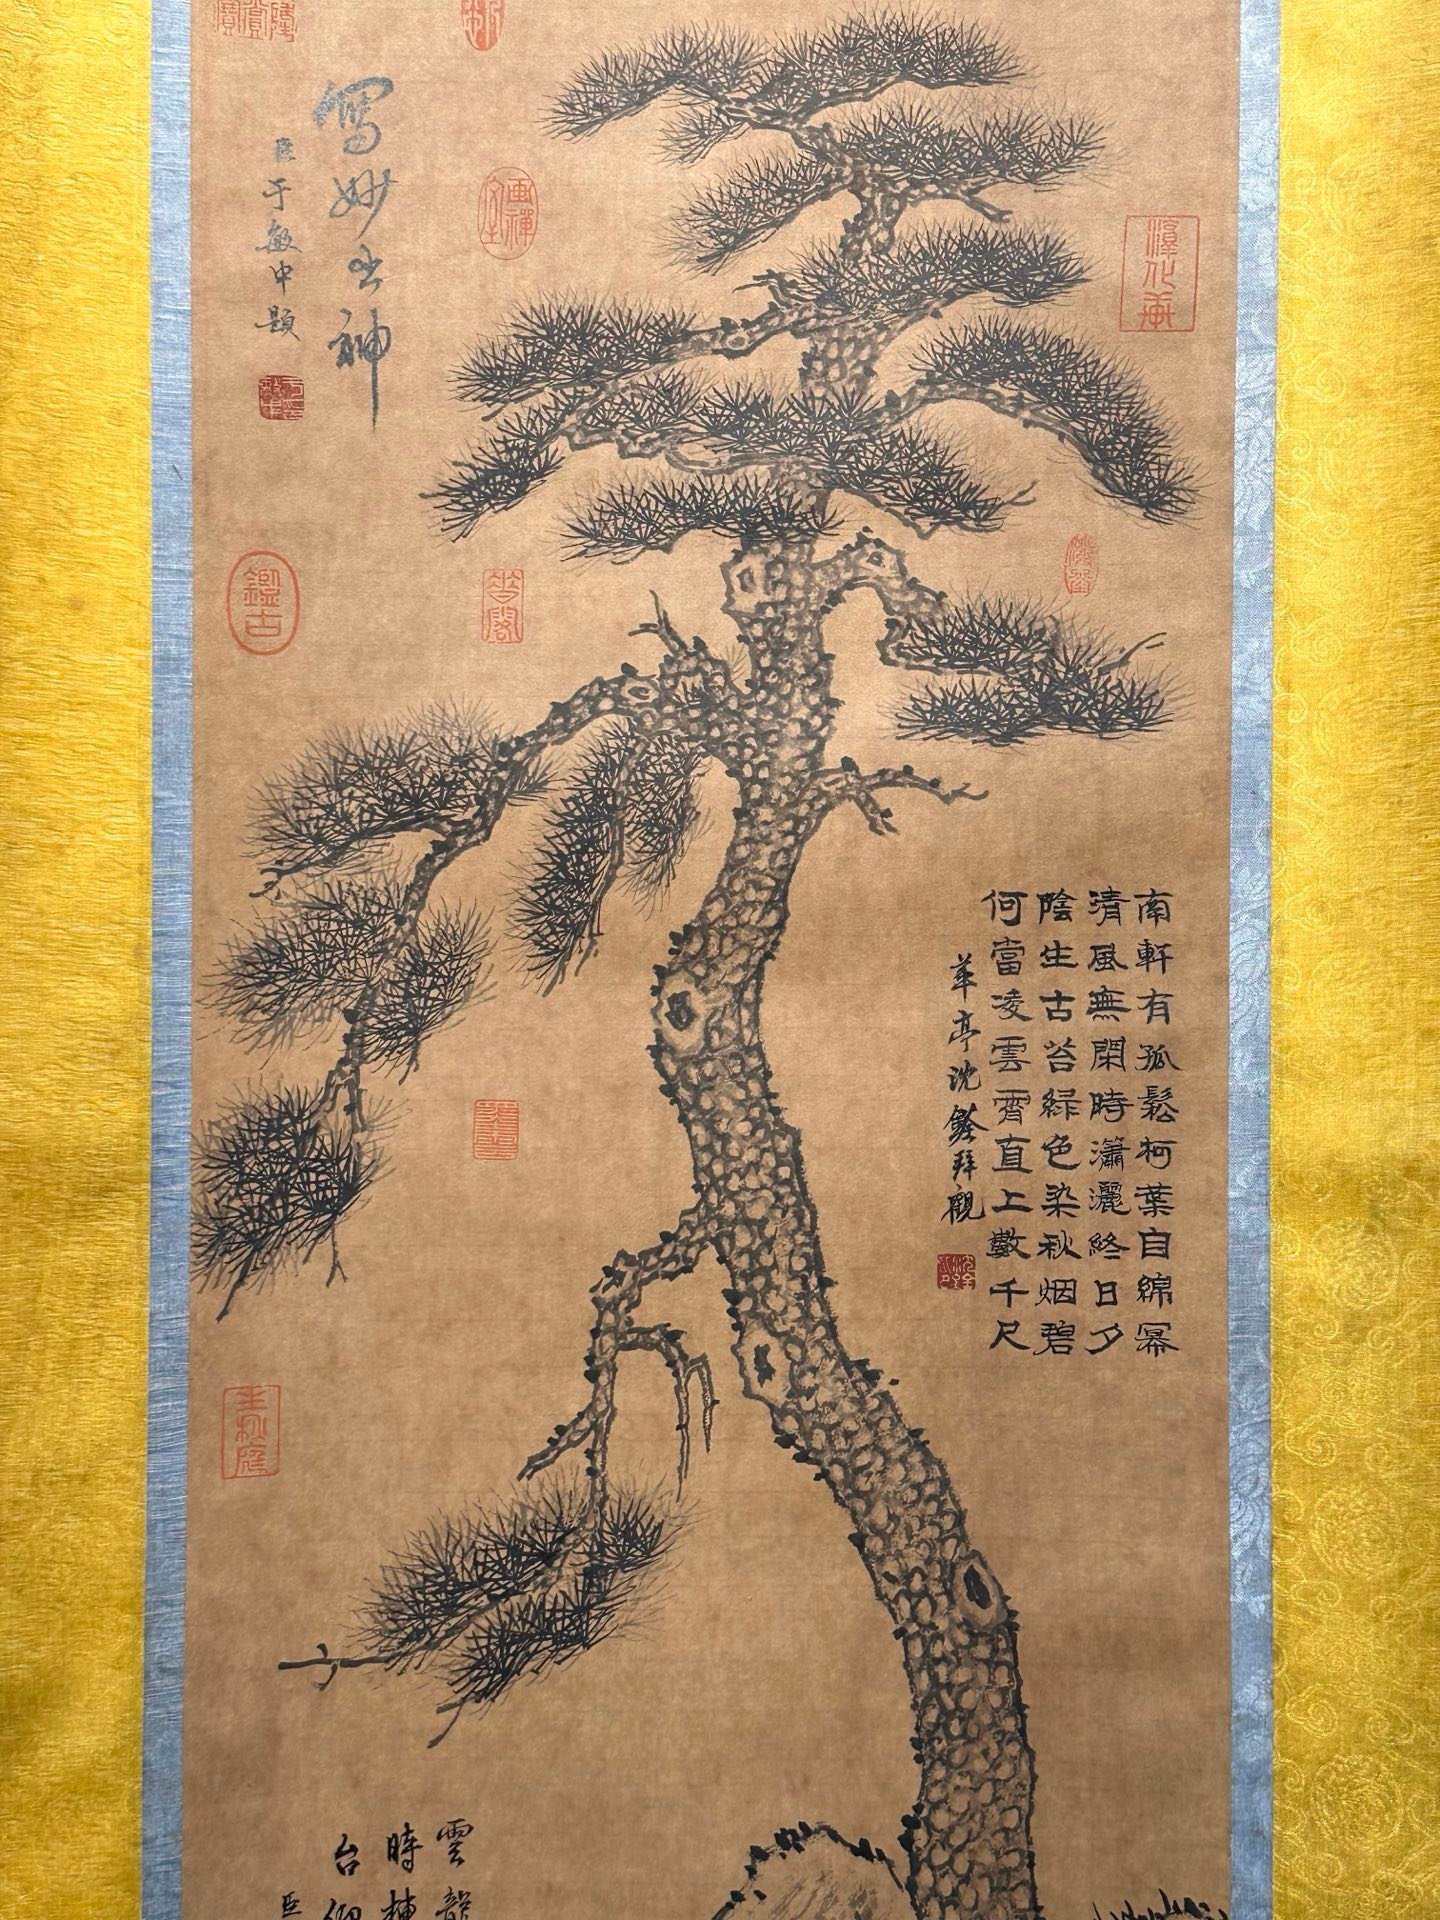 寫妙出神
臣于敏中題
畫禪室
淳化軒
鑑古
南軒有孤鬆柯葉自綿冪
清風無閑時瀟灑終日夕
陰生古苔緑色染秋烟碧
何當凌雲霄直上數千尺
華亭沈銓拜觀
沈銓
雲龍
時棟
台
臣